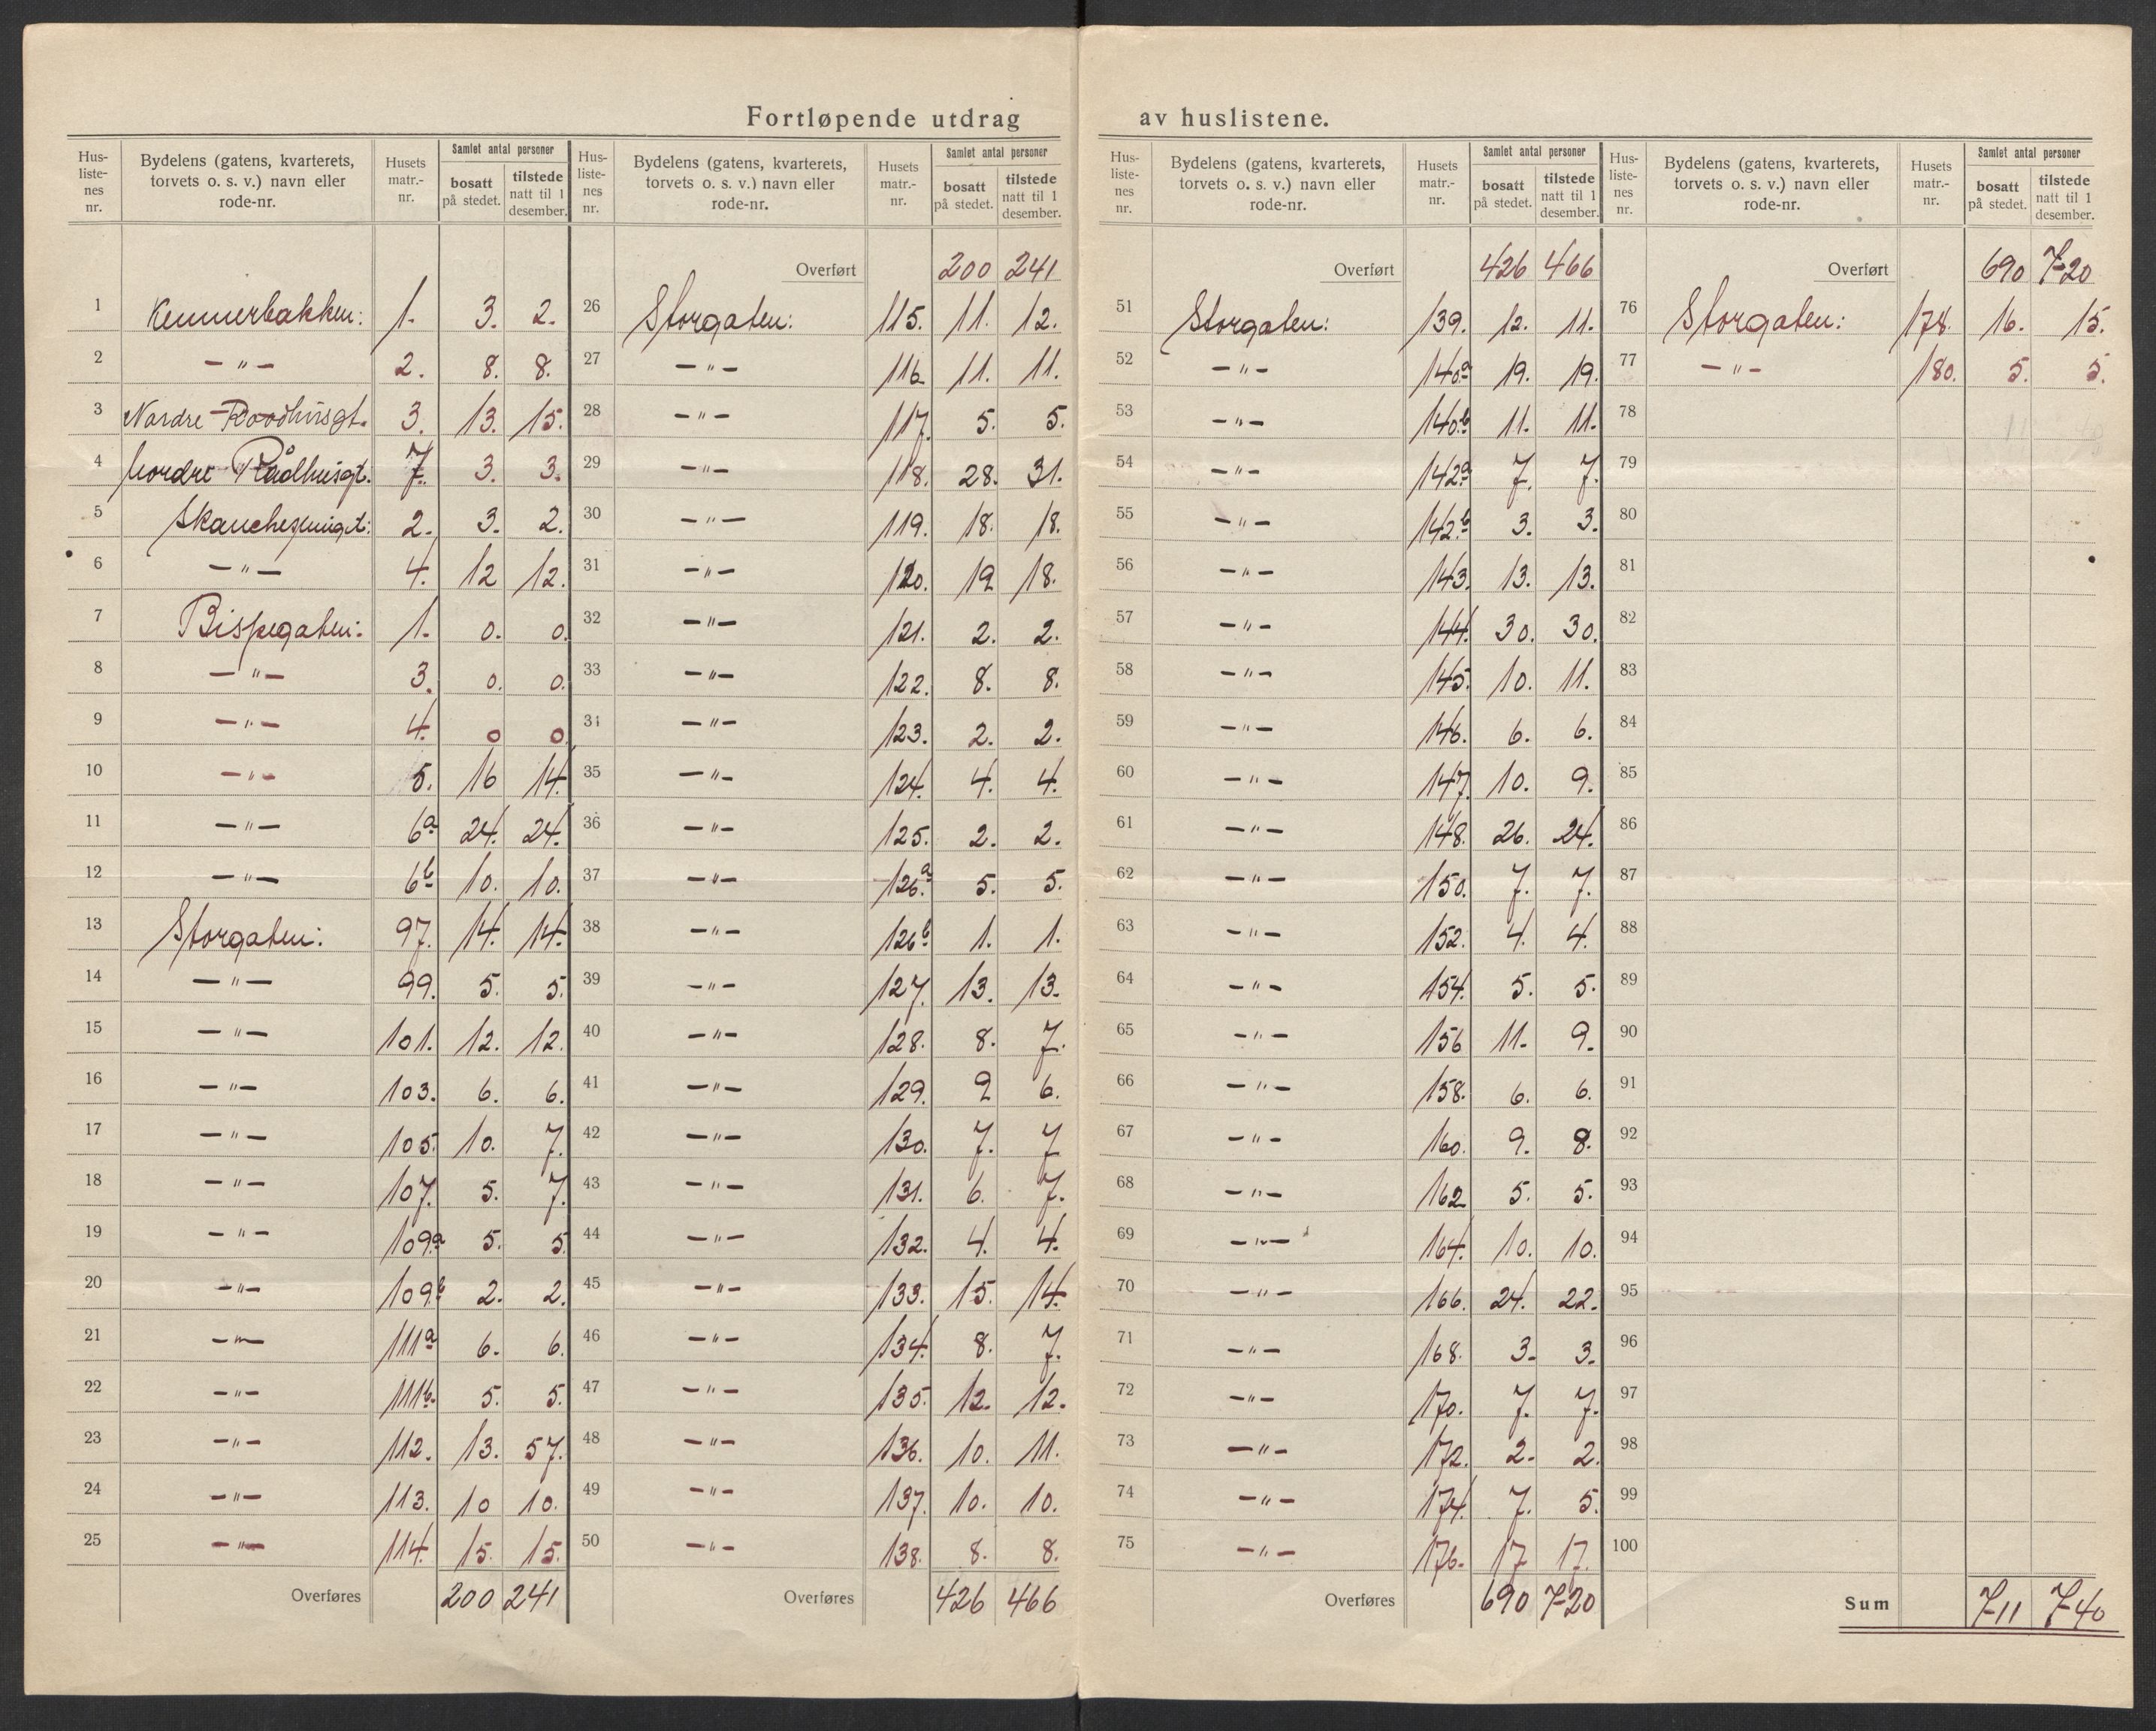 Fortløpende utdrag av huslistene.
Hus-listenes nr. | Bydelens (gatens, kvarterets, torvets o. s. v.) navn eller rode-nr. | Husets matr.-nr. | Samlet antal personer bosatt på stedet. | tilstede natt til 1 desember.
1 Kemnerbakken: 1. 3. 2.
2 —"— 2. 8. 8.
3 Nordre-Raadhusgt. 3. 13. 15.
4 Nordre Rådhusgt. 7. 3. 3.
5 2. 3. 2.
6 —"— 4. 12 12.
7 Bispegaten: 1. 0. 0.
8 —"— 3. 0. 0.
9 —"— 4. 0 0.
10 —"— 5. 16 14.
11 —"— 6a 24. 24.
12 —"— 6b 10. 10.
13 Storgaten: 97. 14. 14.
14 —"— 99. 5. 5.
15 —"— 101. 12. 12.
16 —"— 103. 6. 6.
17 —"— 105. 10. 7.
18 —"— 107. 5. 7.
19 —"— 109.a 5. 5.
20 —"— 109.b 2. 2.
21 —"— 111a 6. 6.
22 —"— 111b. 5. 5.
23 —"— 112. 13. 57.
24 —"— 113. 10 10.
25 —"— 114. 15. 15.
Overføres 200 241
Hus-listenes nr. | Bydelens (gatens, kvarterets, torvets o. s. v.) navn eller rode-nr. | Husets matr.-nr. | Samlet antal personer bosatt på stedet. | tilstede natt til 1 desember.
Overført 200 241
26 Storgaten: 115. 11. 12.
27 —"— 116 11. 11.
28 —"— 117. 5. 5.
29 —"— 118. 28. 31.
30 —"— 119. 18. 18.
31 —"— 120. 19 18.
32 —"— 121. 2. 2.
33 —"— 122. 8. 8.
34 —"— 123. 2. 2.
35 —"— 124. 4. 4.
36 —"— 125. 2. 2.
37 —"— 126.a 5. 5.
38 —"— 126b 1. 1.
39 —"— 127. 13. 13.
40 —"— 128. 8. 7.
41 —"— 129. 9 6.
42 —"— 130. 7. 7
43 —"— 131. 6. 7.
44 —"— 132. 4. 4.
45 —"— 133. 15. 14.
46 —"— 134. 8. 7.
47 —"— 135. 12. 12.
48 —"— 136. 10. 11.
49 —"— 137. 10. 10.
50 —"— 138. 8. 8.
Overføres 426 466
Hus-listenes nr. | Bydelens (gatens, kvarterets, torvets o. s. v.) navn eller rode-nr. | Husets matr.-nr. | Samlet antal personer bosatt på stedet. | tilstede natt til 1 desember.
Overført 426 466
51 Storgaten: 139. 12. 11.
52 —"— 140.a 19. 19.
53 —"— 140.b 11. 11.
54 —"— 142a 7. 7.
55 —"— 142.b 3. 3.
56 —"— 143. 13. 13.
57 —"— 144. 30. 30.
58 —"— 145. 10. 11.
59 —"— 146. 6. 6.
60 —"— 147. 10. 9.
61 —"— 148. 26. 24.
62 —"— 150. 7. 7.
63 —"— 152. 4. 4.
64 —"— 154. 5. 5.
65 —"— 156 11. 9.
66 —"— 158. 6. 6.
67 —"— 160. 9. 8.
68 —"— 162 5. 5.
69 —"— 164. 10. 10.
70 —"— 166. 24. 22.
71 —"— 168. 3. 3.
72 —"— 170. 7. 7.
73 —"— 172. 2. 2.
74 —"— 174. 7. 5.
75 —"— 176. 17 17.
Overføres 690 720
Hus-listenes nr. | Bydelens (gatens, kvarterets, torvets o. s. v.) navn eller rode-nr. | Husets matr.-nr. | Samlet antal personer bosatt på stedet. | tilstede natt til 1 desember.
Overført 690 720
76 Storgaten: 178. 16. 15.
77 —"— 180. 5. 5.
78
79
80
81
82
83
84
85
86
87
88
89
90
91
92
93
94
95
96
97
98
99
100
Sum 711 740